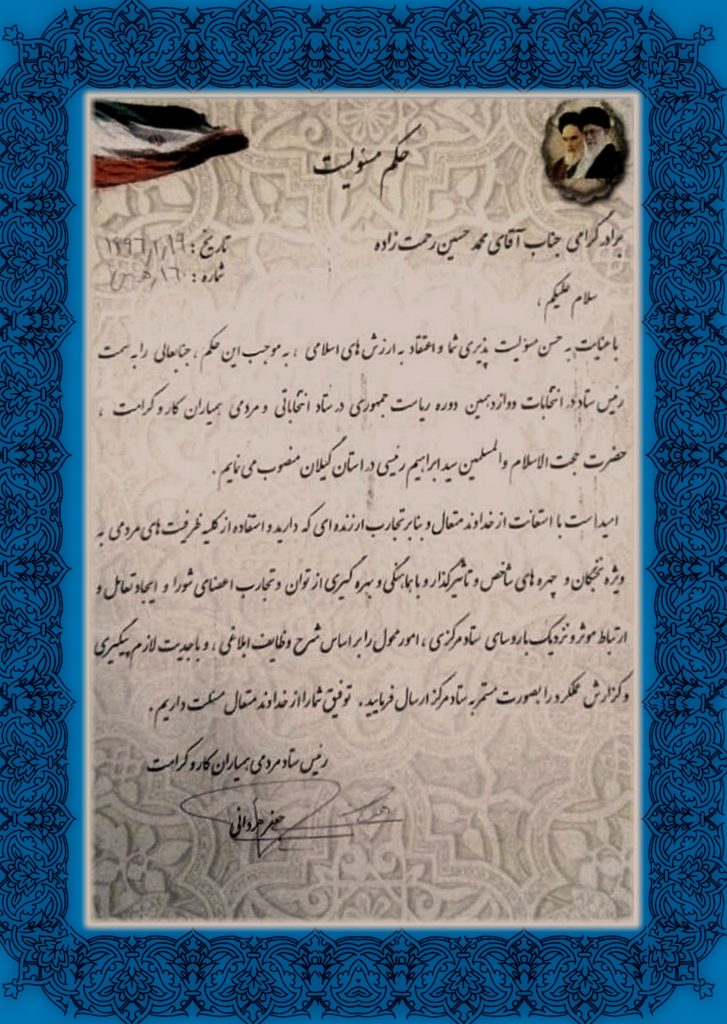 حکم مسئولیت
برادر گرامی جناب آقای محمد حسین رحمت زاده
تاریخ : ۱۳۹۶/۲/۱۹
شماره :
سلام علیکم ،
با عنایت به حسن مسؤلیت پذیری شما و اعتقاد به ارزش های اسلامی ، به موجب این حکم ، جنابعالی را به سمت
رئیس ستاد در انتخابات دوازدهمین دوره ریاست جمهوری در ستاد انتخاباتی و مردمی همیاران کار و کرامت ،
حضرت حجت الاسلام والمسلمین سید ابراهیم رئیسی در استان گیلان منصوب می نمایم .
امید است با استعانت از خداوند متعال و بنابر تجارب ارزنده ای که دارید و استفاده از کلیه ظرفیت های مردمی به
ویژه نخبگان و چهره های شاخص و تأثیرگذار و با هماهنگی و بهره گیری از توان و تجارب اعضای شورا و ایجاد تعامل و
ارتباط موثر و نزدیک با روسای ستاد مرکزی ، امور محول را بر اساس شرح وظایف ابلاغی ، و با جدیت لازم پیگیری
و گزارش عملکرد را بصورت مستمر به ستاد مرکز ارسال فرمایید . توفیق شما را از خداوند متعال مسئلت داریم .
رئیس ستاد مردمی همیاران کار و کرامت
جعفر